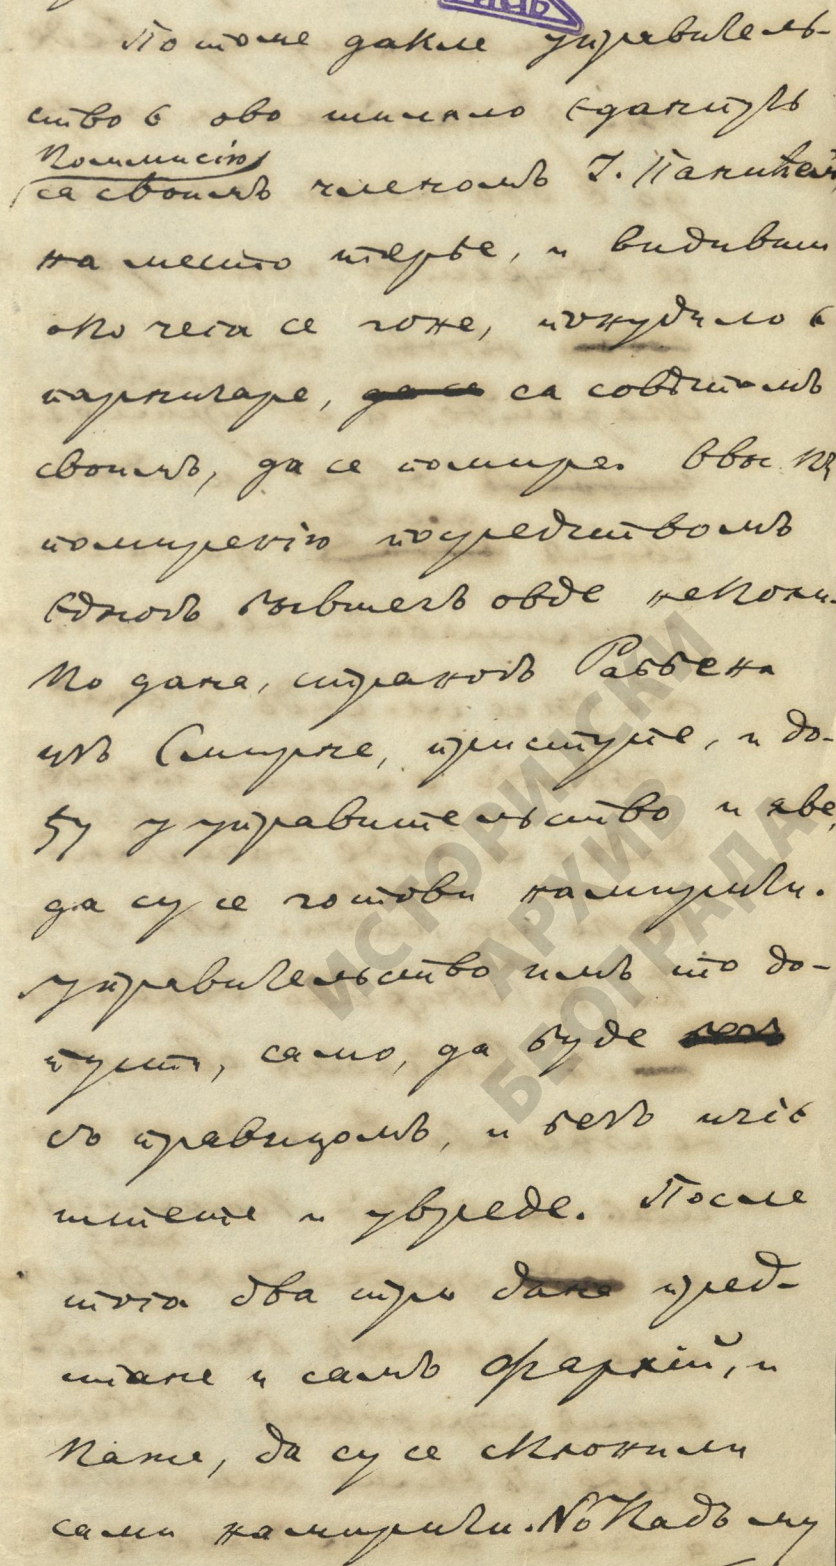 По томе дакле управитель-
ство є ово шиляло єданпутъ
Коммисію
са своимъ членомъ І. Панићемъ
на место терће, и видивши
око чега се гоне, понудило є
парничаре, да се са совѣтомъ
своимъ, да се помире. кꙋ
помиренію посредствомъ
єдногъ бывшегъ овде неколи-
ко дана, страногъ Раббена
изъ Смирне, приступе, и до-
ђу у управительство и яве,
да су се готови намирити.
Управительство имъ то до-
пусти, само, да буде безъ
съ правицомъ, и безъ ичіє
штете и увреде. После
тога два три дана пред-
стане и самъ Фархій, и
каже, да су се склонили
сами намирити. No Кадъ му
ИСТОРИЈСКИ
АРХИВ
БЕОГРАДА